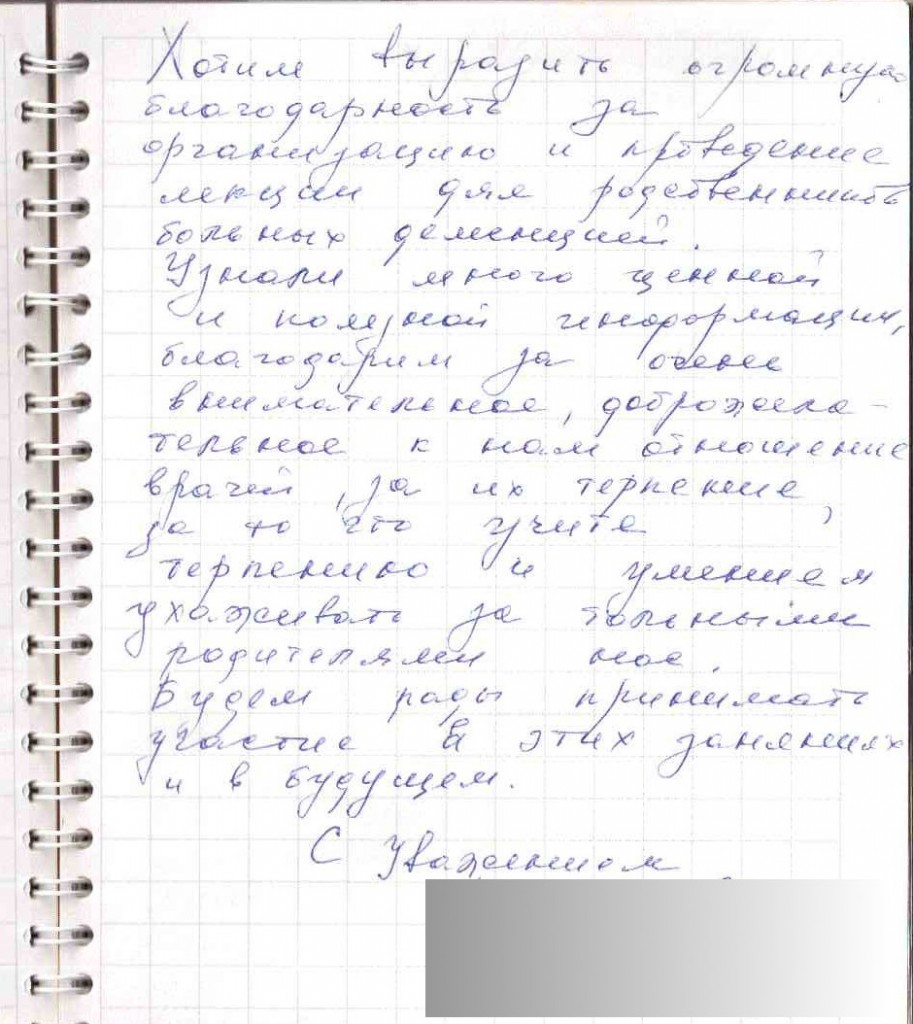 Хотим выразить огромную
благодарность за
организацию и проведение
лекции для родственников
больных деменцией.
Узнали много ценной
и полезной информации,
благодарим за очень
внимательное, доброжела-
тельное к нам отношение
врачей, за их терпение,
за то что учите
терпению и умением
ухаживать за больными
родителями нас.
Будем рады принимать
участие в этих занятиях
и в будущем.
С Уважением